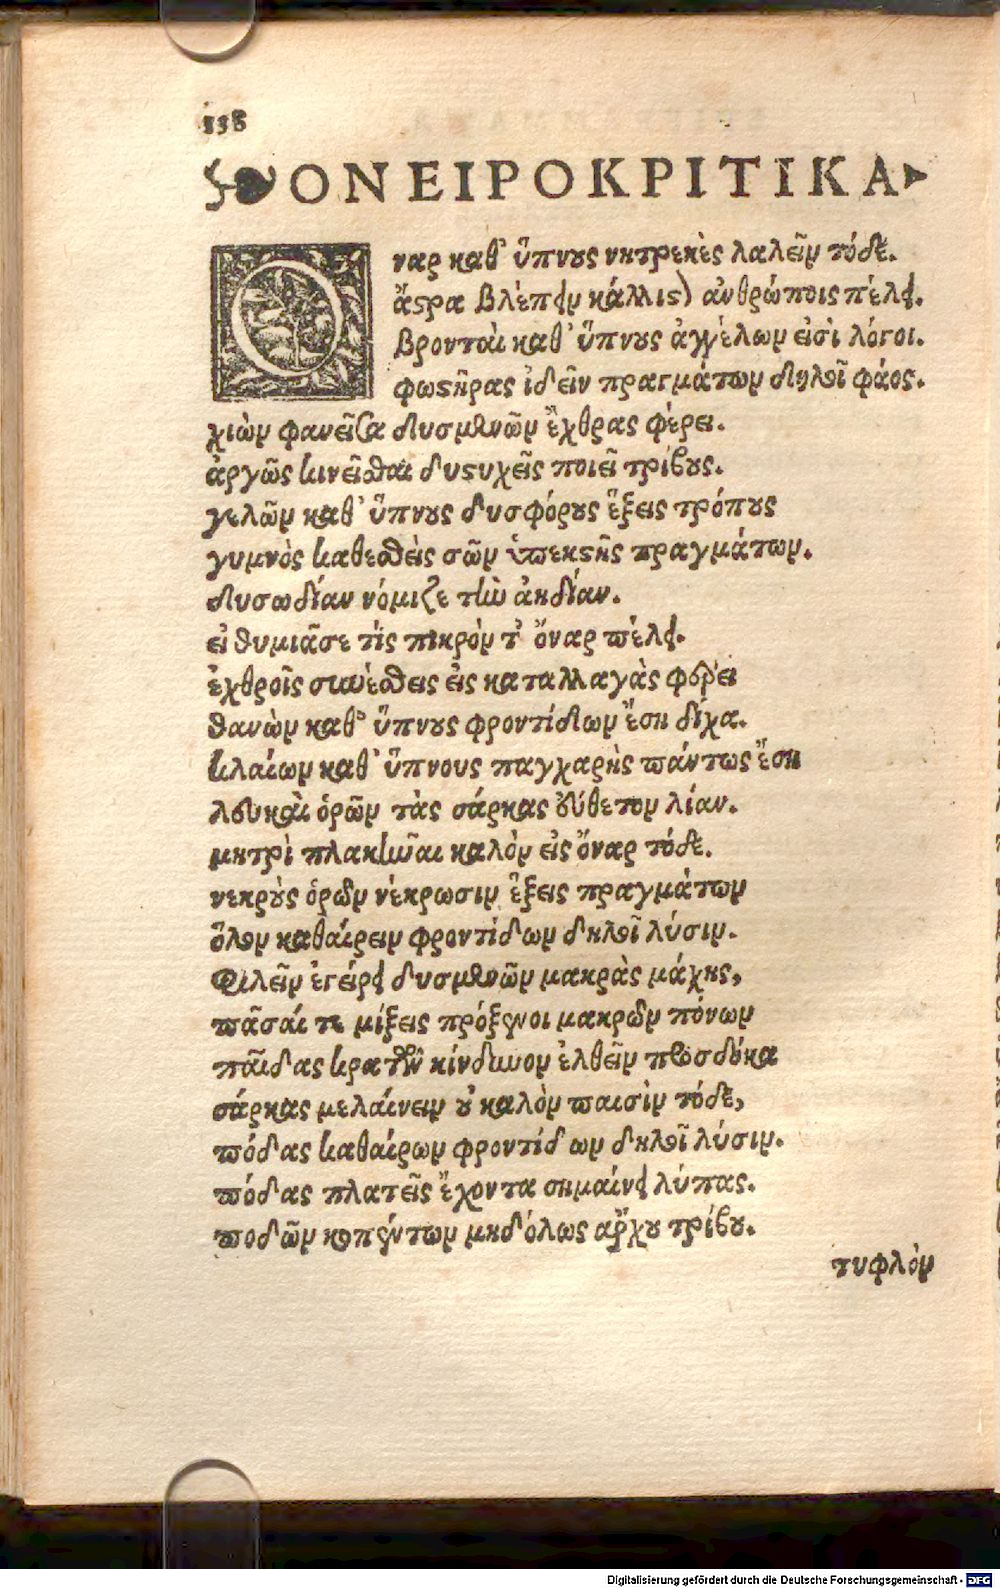 138
ΟΝΕΙΡΟΚΡΙΤΙΚΑ
Οναρ καθ᾽ ὕπνους νητρεκὲς λαλεῖν τόδε.
ἄστρα βλέπειν κάλλιστ) ἀνθρώποις πέλει.
βρονταὶ καθ᾽ ὕπνους ἀγγέλων εἰσὶ λόγοι.
φωστῆρας ἰδεῖν πραγμάτων δηλοῖ φάος.
χιὼν φανεῖσα δυσμενῶν ἔχθρας φέρει.
ἀργῶς κινεῖσθαι δυστυχεῖς ποιεῖ τρίβους.
γελῶν καθ᾽ ὕπνους δυσφόρους ἕξεις τρόπους
γυμνὸς καθεσθεὶς σῶν ὑπεκστῆς πραγμάτων.
δυσωδίαν νόμιζε τὴν ἀηδίαν.
εἰ θυμιᾶσε τίς πικρὸν τ᾽ ὄναρ πέλει.
ἐχθροῖς συνέσθεις εἰς καταλλαγὰς φορεῖ
θανὼν καθ᾽ ὕπνους φροντίδων ἔση δίχα.
κλαίων καθ᾽ ὕπνους παγχαρὴς πάντως ἔση
λευκὰι ὁρῶν τὰς σάρκας εὔθετον λίαν.
μητρὶ πλακῆναι καλὸν εἰς ὄναρ τόδε.
νεκροὺς ὁρῶν νέκρωσιν ἕξεις πραγμάτων
ὅλον καθαίρειν φροντίδων δηλοῖ λύσιν.
Φιλεῖν ἐγείρει δυσμενῶν μακρὰς μάχης,
πᾶσαί τε μίξεις πρόξενοι μακρῶν πόνων
παῖδας κρατεῖν κίνδυνον ἐλθεῖν προσδόκα
σάρκας μελαίνειν οὐ καλὸν πᾶισὶν τόδε,
πόδας καθαίρων φροντίδων δηλοῖ λύσιν.
πόδας πλατεῖς ἔχοντα σημαίνει λύπας.
ποδῶν κοπέντων μηδ᾽ ὅλως ἄρχου τρίβου.
τυφλὸν
Digitalisierung gefördert durch die Deutsche Forschungsgemeinschaft - DFG